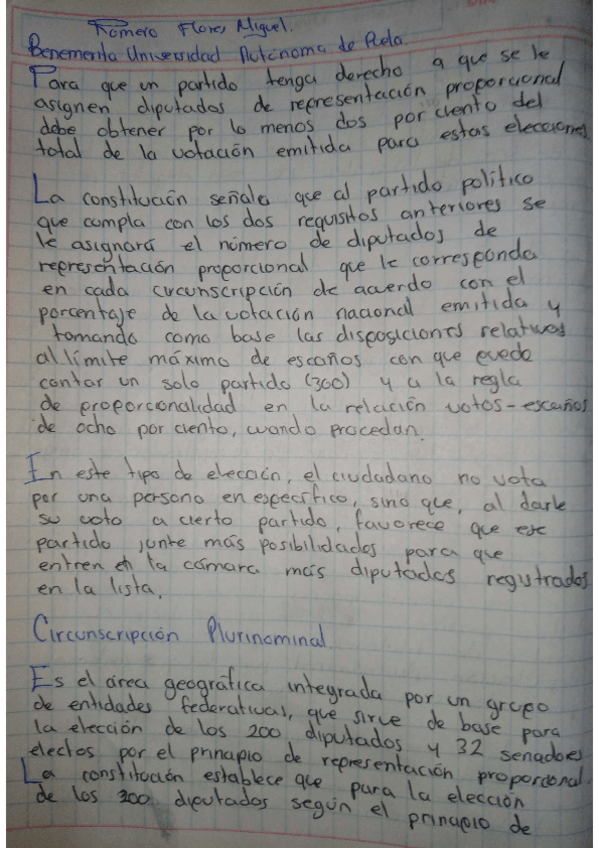 Romero Flores Miguel.
Benemerita Universidad Autónoma de Puebla.
Para que un partido tenga derecho a que se le
asignen diputados de representación proporcional
debe obtener por lo menos dos por ciento del
total de la votación emitida para estas elecciones
La constitución señala que al partido político
que cumpla con los dos requisitos anteriores se
le asignará el número de diputados de
representación proporcional que le corresponda
en cada circunscripción de acuerdo con el
porcentaje de la votación nacional emitida y
tomando como base las disposiciones relativas
al límite máximo de escaños con que puede
contar un solo partido (300) y a la regla
de proporcionalidad en la relación votos-escaños
de ocho por ciento, cuando procedan.
En este tipo de elección, el ciudadano no vota
por una persona en específico, sino que, al darle
su voto a cierto partido, favorece que ese
partido junte más posibilidades para que
entren en la cámara más diputados registrados
en la lista.
Circunscripción Plurinominal
Es el área geográfica integrada por un grupo
de entidades federativas, que sirve de base para
la elección de los 200 diputados y 32 senadores
electos por el principio de representación proporcional.
La constitución establece que para la elección
de los 200 diputados según el principio de